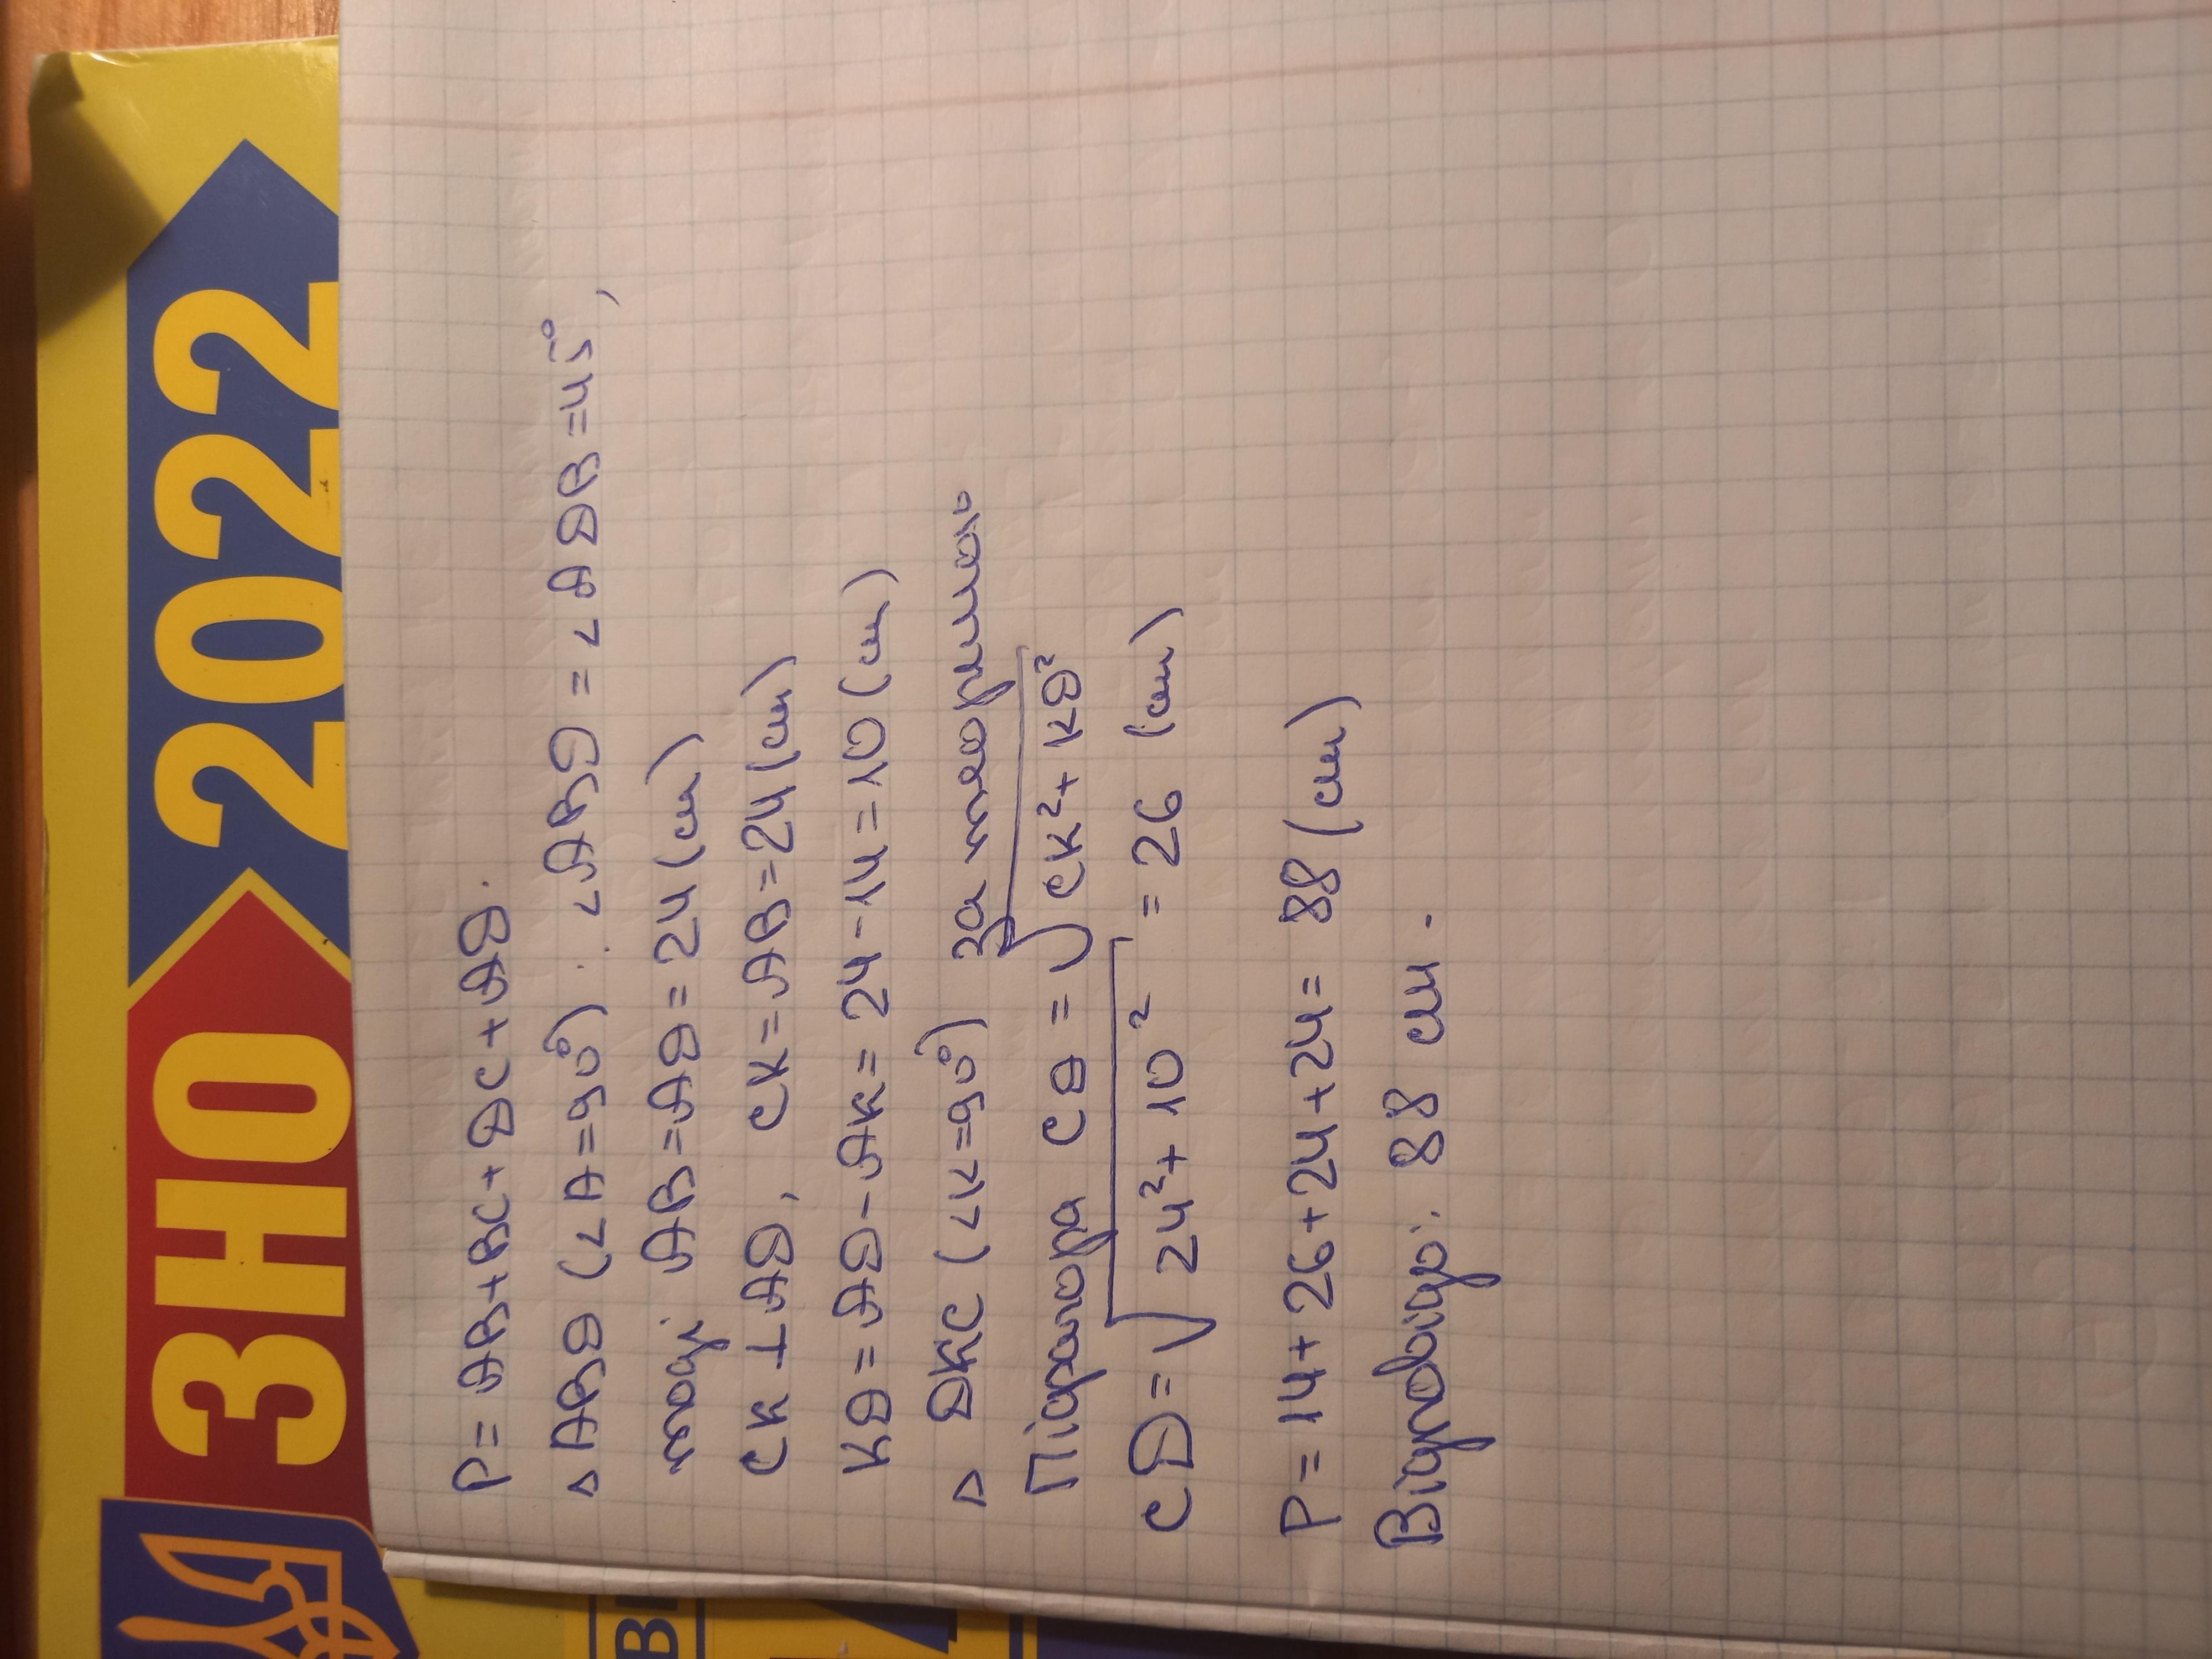 ЗНО 2022
P = AB+BC+DC+AD.
△ ABD (∠A=90°) : ∠ABD = ∠ADB = 45°,
тоді AB=AD = 24 (см)
CK ⊥ AD, CK = AB=24 (см)
KD = AD - AK = 24-14 = 10 (см)
△ DKC (∠K=90°) за теоремою
Піфагора CD = √CK²+KD²
CD = √24²+10² = 26 (см)
P = 14+26+24+24= 88 (см)
Відповідь: 88 см.